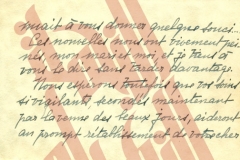 nuait à vous donner quelque souci...
Ces nouvelles nous ont vivement pei-
nés, mon mari et moi, et je tiens à
vous le dire sans tarder davantage.
Nous espérons toutefois que vos soins
si vigilants, secondés maintenant
par la venue des beaux jours, aideront
au prompt rétablissement de votre cher